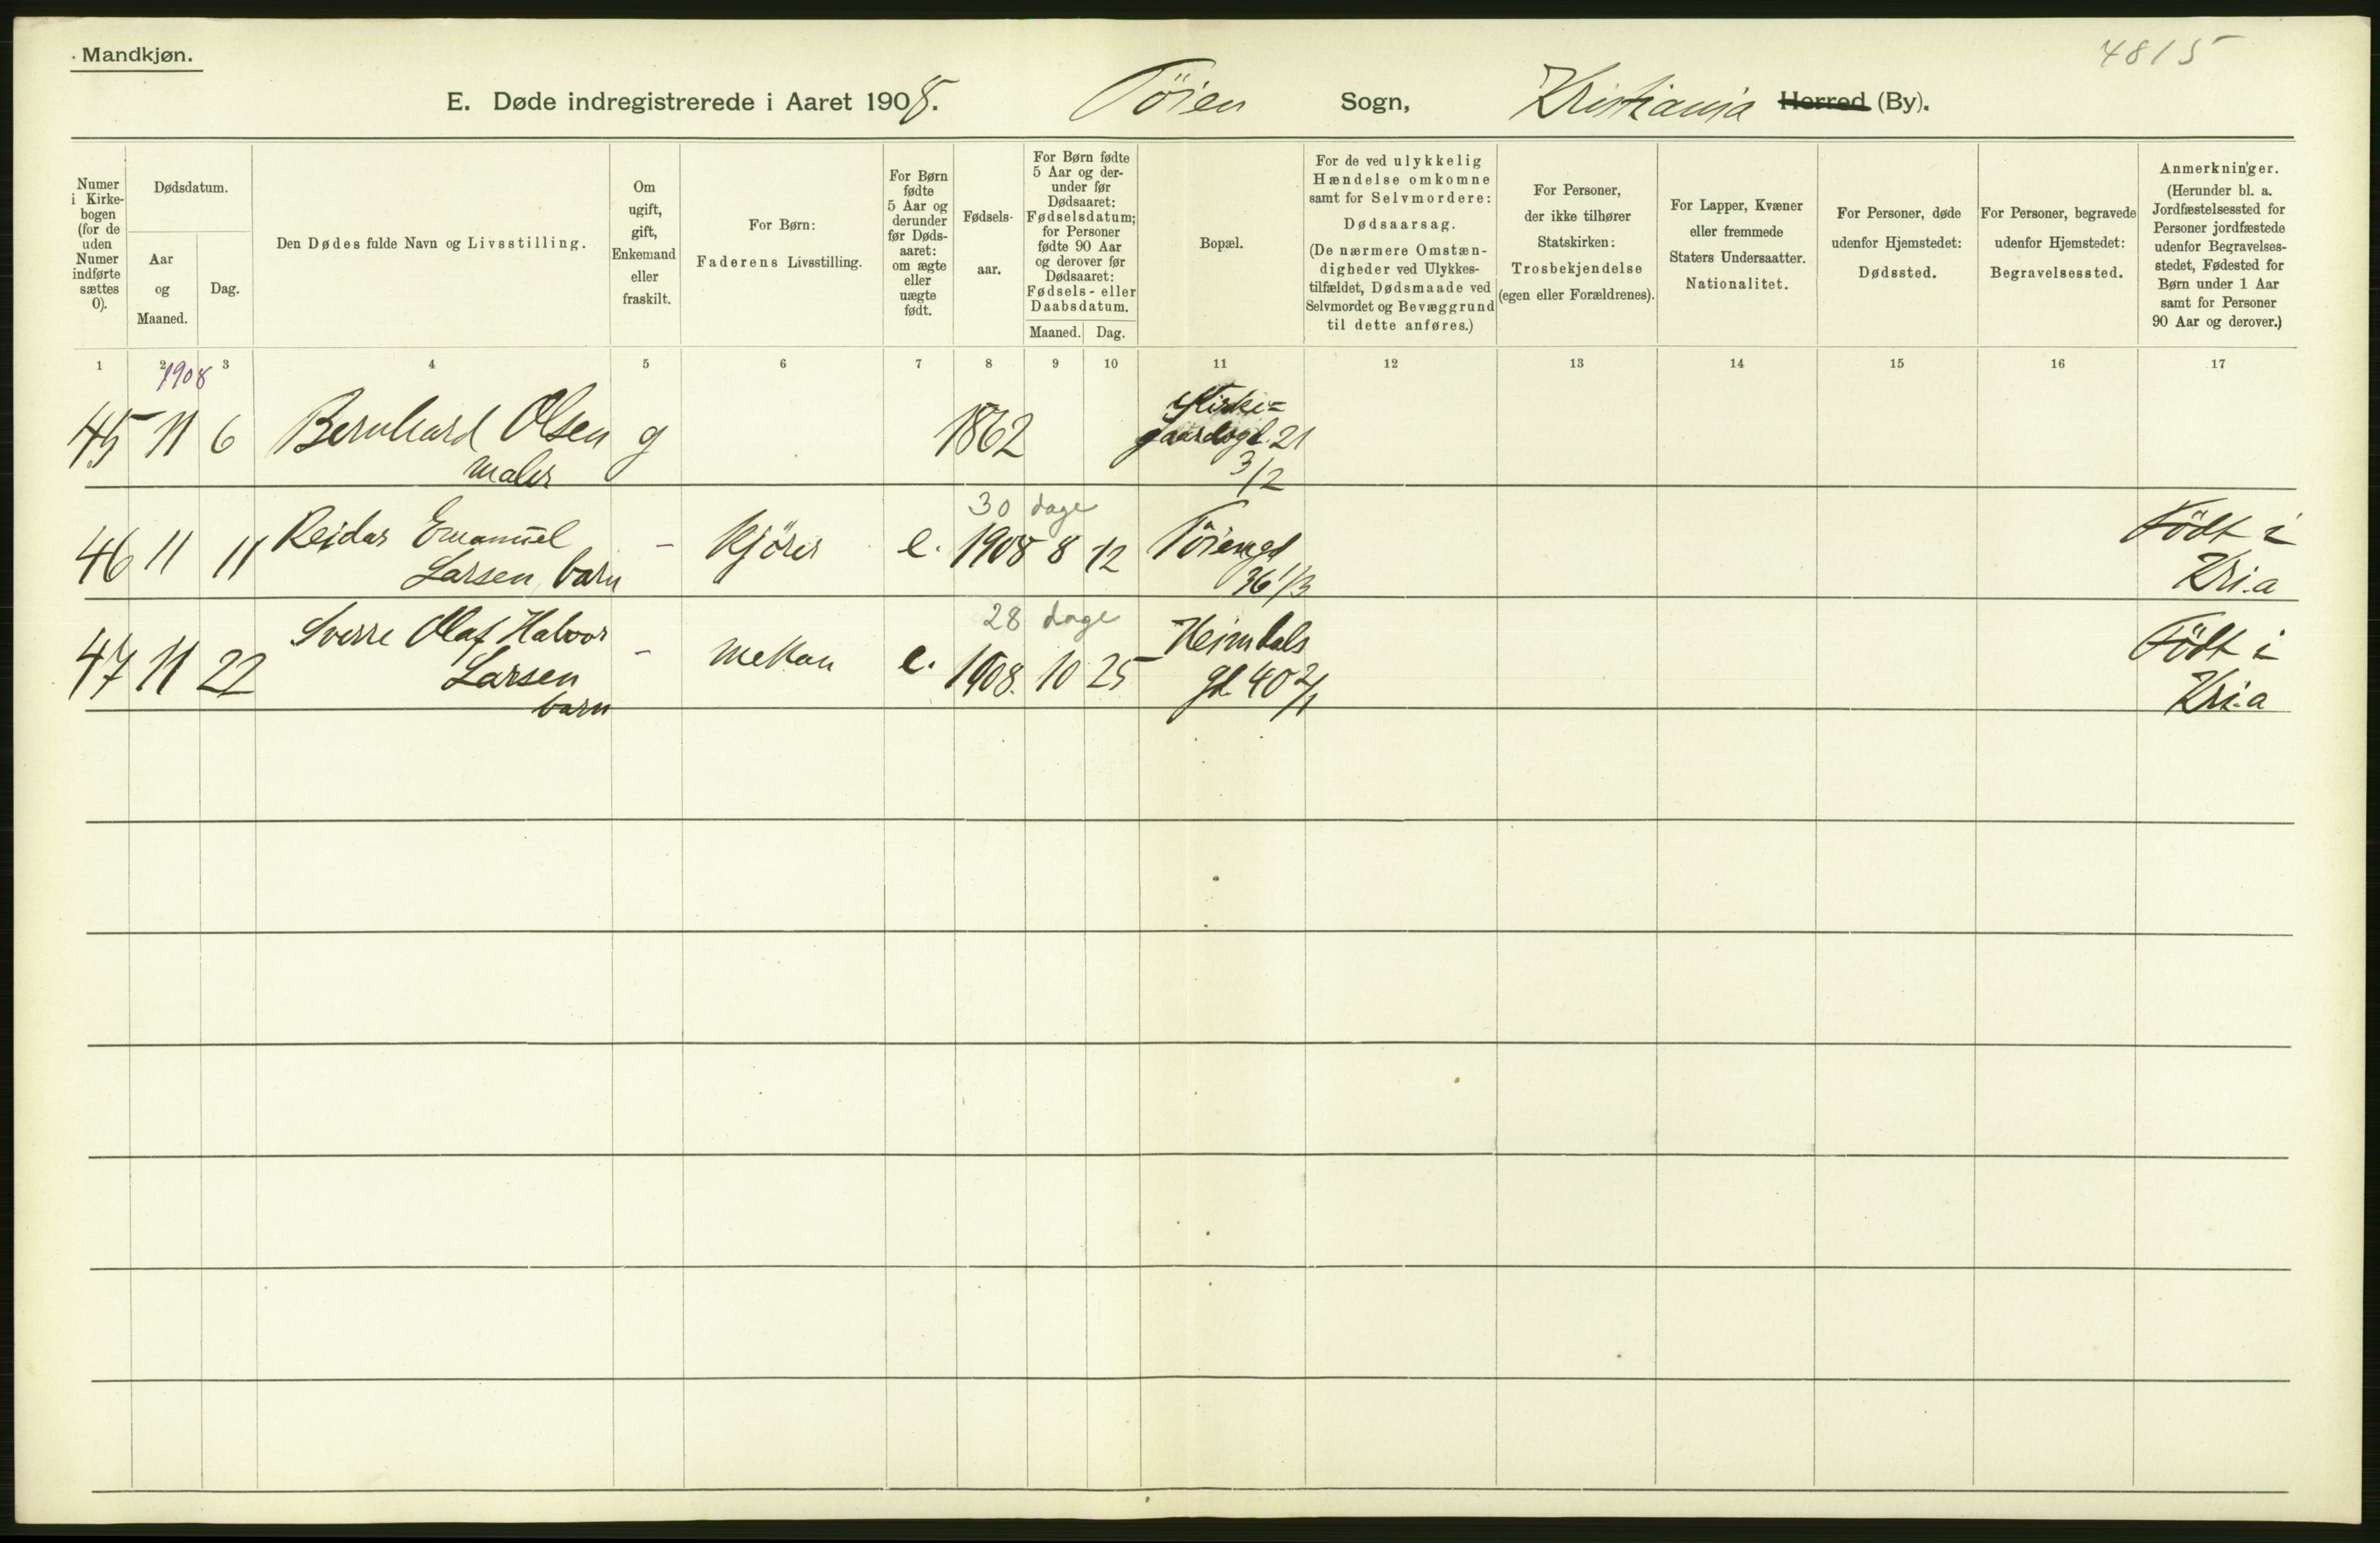 Mandkjøn.
4815
E. Døde indregistrerede i Aaret 1908. Töien Sogn, Kristiania Herred (By).
Numer
i Kirke-
bogen
(for de
uden
Numer
indførte
sættes
0).
Dødsdatum.
Aar
og
Maaned.
Dag.
Den Dødes fulde Navn og Livsstilling.
Om
ugift,
gift,
Enkemand
eller
fraskilt.
For Børn:
Faderens Livsstilling.
For Børn
fødte
5 Aar og
derunder
før Døds-
aaret:
om ægte
eller
uægte
født.
Fødsels-
aar.
For Børn fødte
5 Aar og der-
under før
Dødsaaret:
Fødselsdatum;
for Personer
fødte 90 Aar
og derover før
Dødsaaret:
Fødsels- eller
Daabsdatum.
Maaned. Dag.
Bopæl.
For de ved ulykkelig
Hændelse omkomne
samt for Selvmordere:
Dødsaarsag.
(De nærmere Omstæn-
digheder ved Ulykkes-
tilfældet, Dødsmaade ved
Selvmordet og Bevæggrund
til dette anføres.)
For Personer,
der ikke tilhører
Statskirken:
Trosbekjendelse
(egen eller Forældrenes).
For Lapper, Kvæner
eller fremmede
Staters Undersaatter.
Nationalitet.
For Personer, døde
udenfor Hjemstedet:
Dødssted.
For Personer, begravede
udenfor Hjemstedet:
Begravelsessted.
Anmerkninger.
(Herunder bl. a.
Jordfæstelsessted for
Personer jordfæstede
udenfor Begravelses-
stedet, Fødested for
Børn under 1 Aar
samt for Personer
90 Aar og derover.)
1 2 3 4 5 6 7 8 9 10 11 12 13 14 15 16 17
1908
45 11 6 Bernhard Olsen g 1862 Kirke=
maler gaardsgd. 21
3/2
30 dage
46 11 11 Reidar Emanuel - Kjörer e. 1908 8 12 Töiengd Födt i
Larsen, barn 36 1/3 Kri.a
28 dage
47 11 22 Sverre Olaf Halvor - mekan e. 1908. 10 25 Heimdals Födt i
Larsen gd. 40 2/1 Kri.a
barn